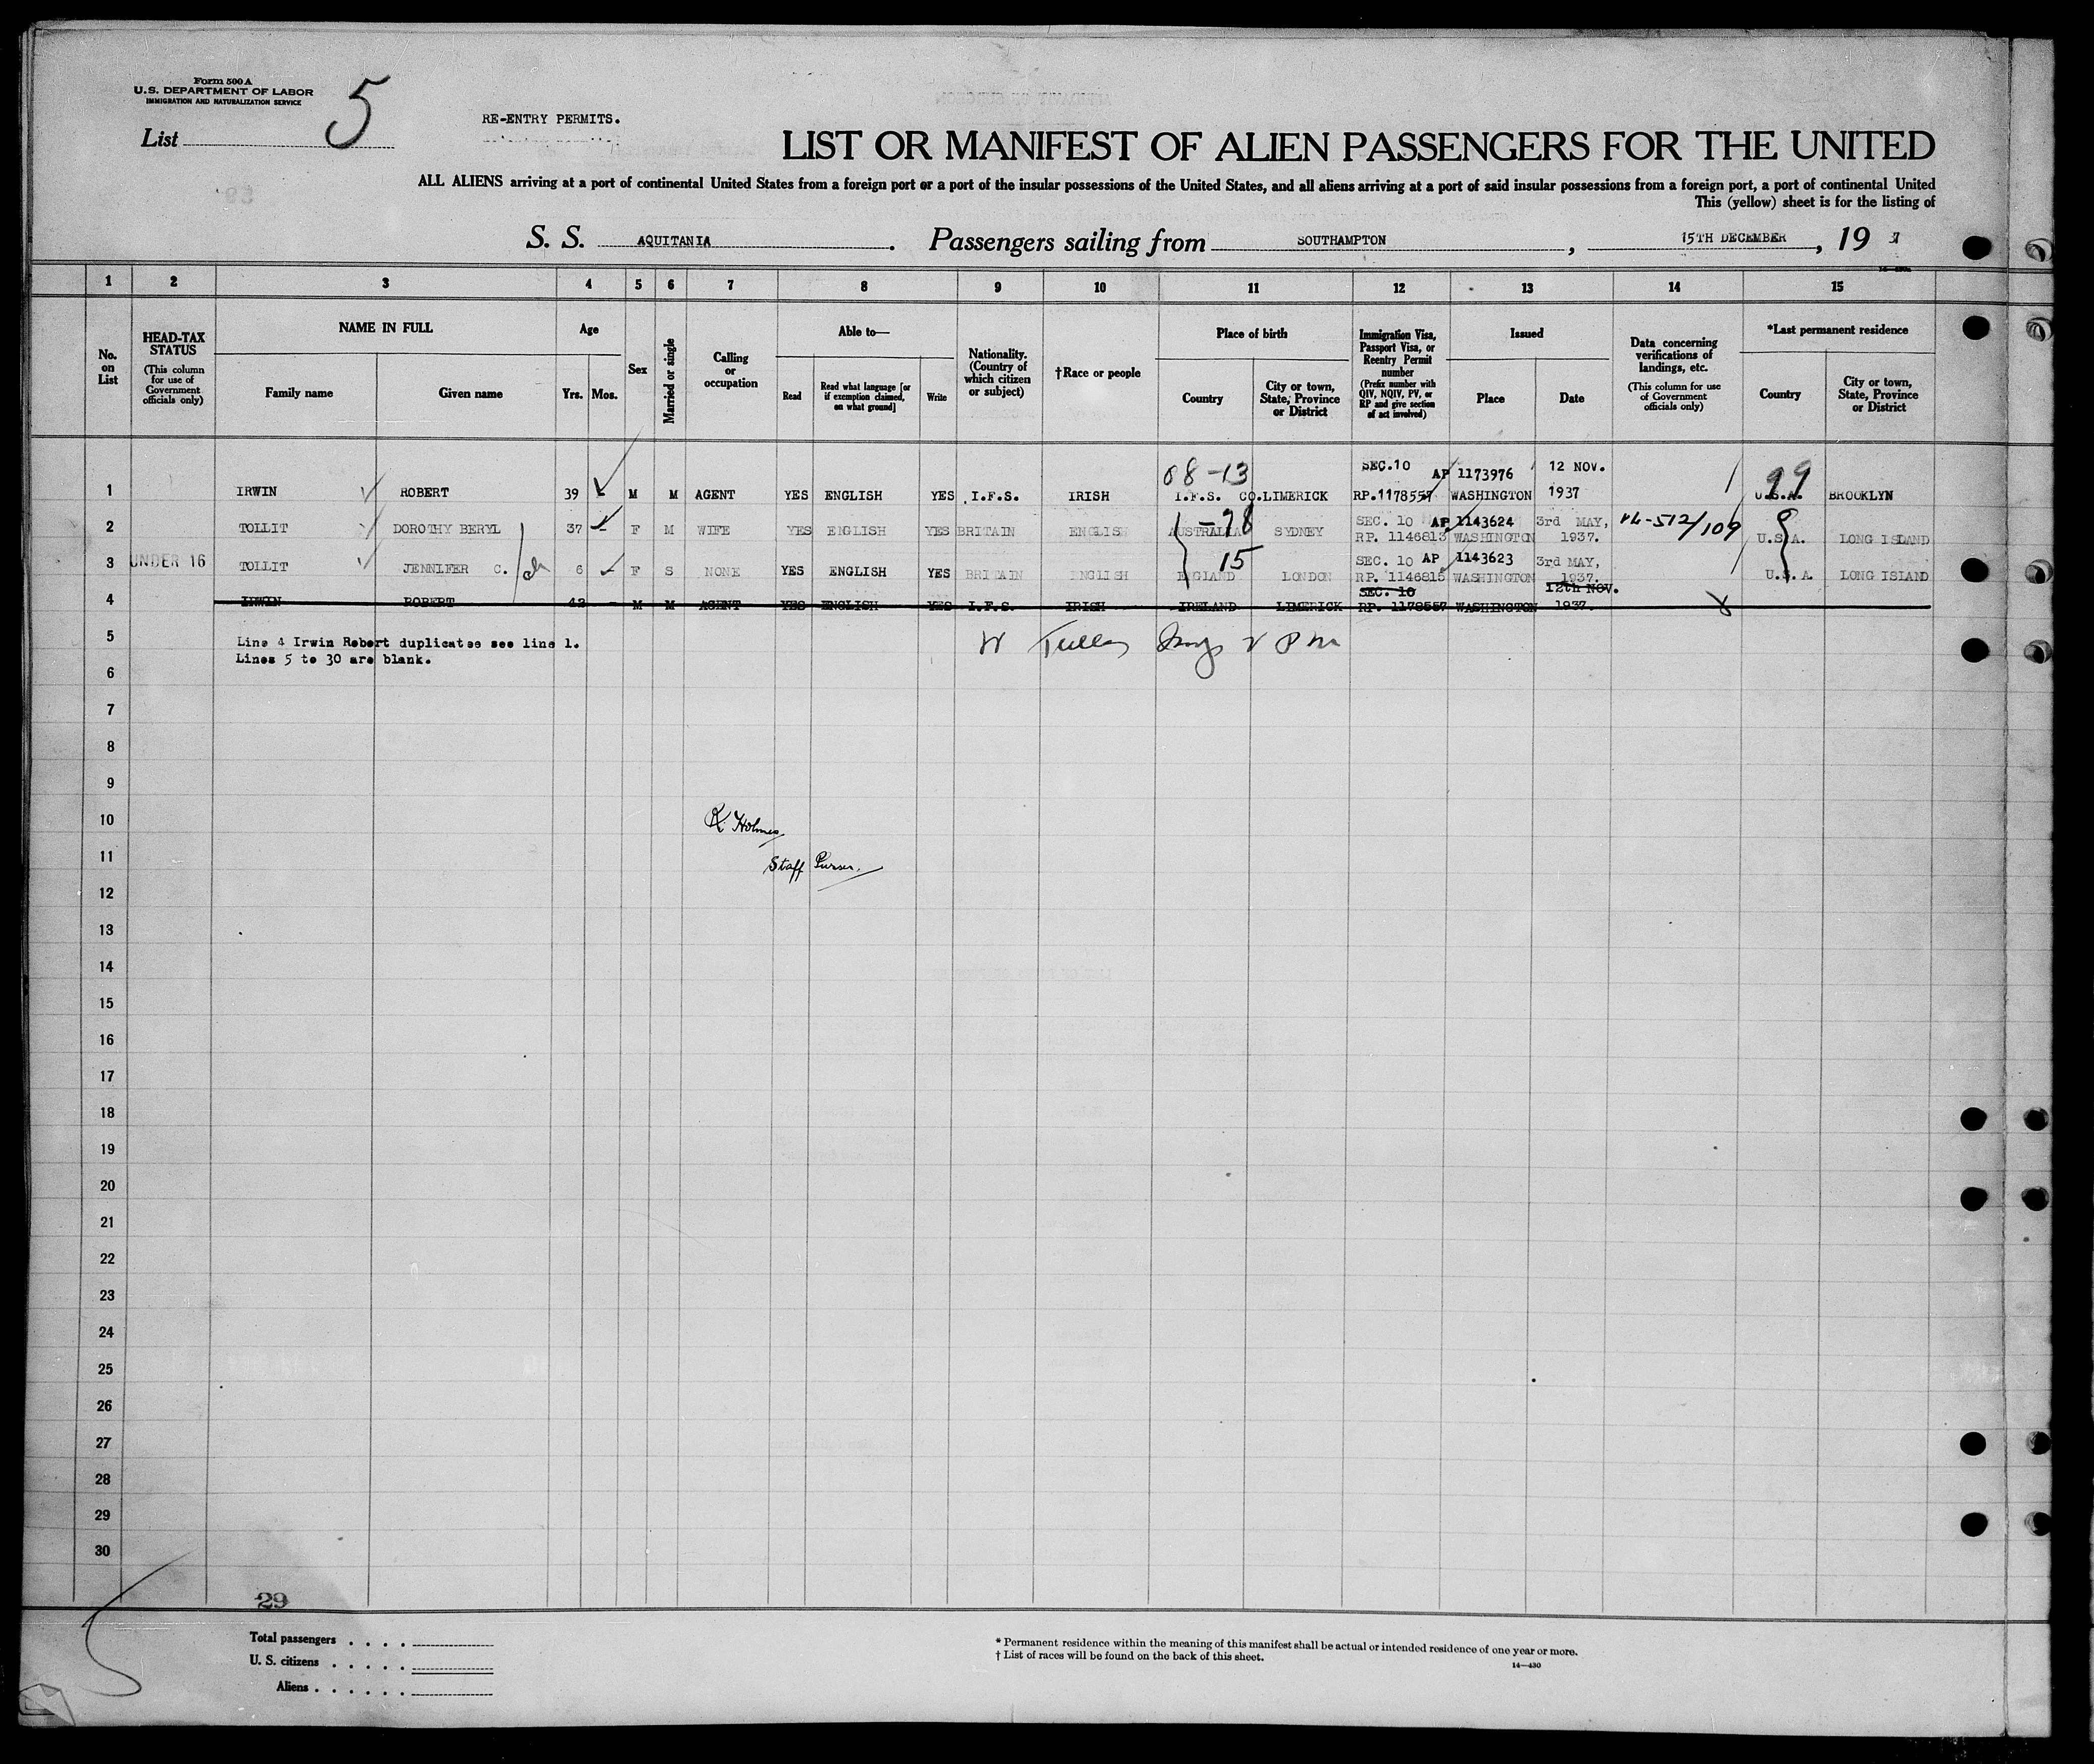 Form 500 A
U.S. DEPARTMENT OF LABOR
IMMIGRATION AND NATURALIZATION SERVICE
List 5
RE-ENTRY PERMITS.
LIST OR MANIFEST OF ALIEN PASSENGERS FOR THE UNITED
ALL ALIENS arriving at a port of continental United States from a foreign port or a port of the insular possessions of the United States, and all aliens arriving at a port of said insular possessions from a foreign port, a port of continental United
This (yellow) sheet is for the listing of
S. S. AQUITANIA. Passengers sailing from SOUTHAMPTON, 15TH DECEMBER, 19 37
1 2 3 4 5 6 7 8 9 10 11 12 13 14 15
No. on List
HEAD-TAX STATUS
(This column for use of Government officials only)
NAME IN FULL
Family name
Given name
Age
Yrs. Mos.
Sex
Married or single
Calling or occupation
Able to—
Read
Read what language [or if exemption claimed, on what ground]
Write
Nationality. (Country of which citizen or subject)
†Race or people
Place of birth
Country
City or town, State, Province or District
Immigration Visa, Passport Visa, or Reentry Permit number
(Prefix number with QIV, NQIV, PV, or RP and give section of act involved)
Issued
Place
Date
Data concerning verifications of landings, etc.
(This column for use of Government officials only)
*Last permanent residence
Country
City or town, State, Province or District
08-13 SEC.10 AP 1173976 12 NOV. 99
1 IRWIN ROBERT 39 - M M AGENT YES ENGLISH YES I.F.S. IRISH I.F.S. CO.LIMERICK RP.1178557 WASHINGTON 1937 U.S.A. BROOKLYN
-78 SEC. 10 AP 1143624 3rd MAY, 512/109
2 TOLLIT DOROTHY BERYL 37 - F M WIFE YES ENGLISH YES BRITAIN ENGLISH AUSTRALIA SYDNEY RP. 1146813 WASHINGTON 1937. U.S.A. LONG ISLAND
15 SEC. 10 AP 1143623 3rd MAY,
3 UNDER 16 TOLLIT JENNIFER C. 6 - F S NONE YES ENGLISH YES BRITAIN ENGLISH ENGLAND LONDON RP. 1146815 WASHINGTON 1937. U.S.A. LONG ISLAND
SEC. 10 12th NOV.
4 IRWIN ROBERT 42 - M M AGENT YES ENGLISH YES I.F.S. IRISH IRELAND LIMERICK RP. 1178557 WASHINGTON 1937.
5 Line 4 Irwin Robert duplicates see line 1.
Lines 5 to 30 are blank.
6
7
8
9
10 Holmes
11 Staff Purser.
12
13
14
15
16
17
18
19
20
21
22
23
24
25
26
27
28
29
30
29
Total passengers . . . .
U. S. citizens . . . . .
Aliens . . . . . .
* Permanent residence within the meaning of this manifest shall be actual or intended residence of one year or more.
† List of races will be found on the back of this sheet.
14—430